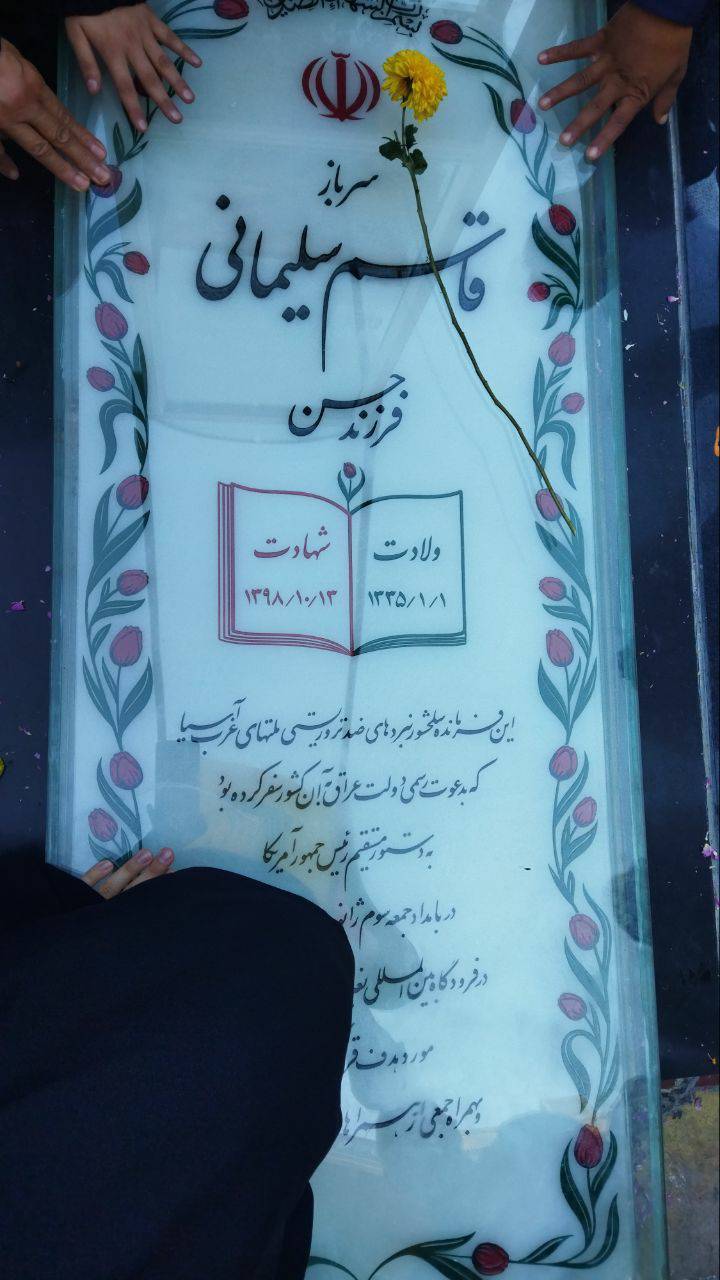 سرباز
قاسم سلیمانی
فرزند حسن
ولادت
۱۳۳۵/۱/۱
شهادت
۱۳۹۸/۱۰/۱۳
این فرمانده سلحشور نبردهای ضد تروریستی ملتهای غرب آسیا
که بدعوت رسمی دولت عراق به آن کشور سفر کرده بود
به دستور مستقیم رئیس جمهور آمریکا
در بامداد جمعه سوم
در فرودگاه بین المللی
مورد هدف
و بهمراه جمعی از